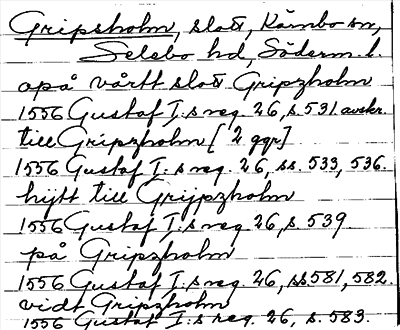 Gripsholm, slott, Kärnbo sn,
Selebo hd, Söderm. l.
opå vårtt slott Gripzholm
1556 Gustaf I:s reg. 26, s. 531 avskr.
till Gripzholm [2 ggr]
1556 Gustaf I:s reg. 26, ss. 533, 536.
hijtt till Grijpzholm
1556 Gustaf I:s reg. 26, s. 539.
på Gripzholm
1556 Gustaf I:s reg. 26, ss 581, 582.
vidt Gripzholm
1556 Gustaf I:s reg. 26, s. 583.